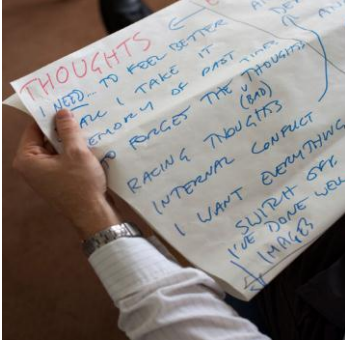 THOUGHTS
NEED... TO FEEL BETTER
ALL I TAKE IT
MEMORY OF PAST TIMES
TO FORGET THE THOUGHTS
(BAD)
RACING THOUGHTS
INTERNAL CONFLICT
I WANT EVERYTHING
SWITCH OFF
I'VE DONE WELL
IMAGES